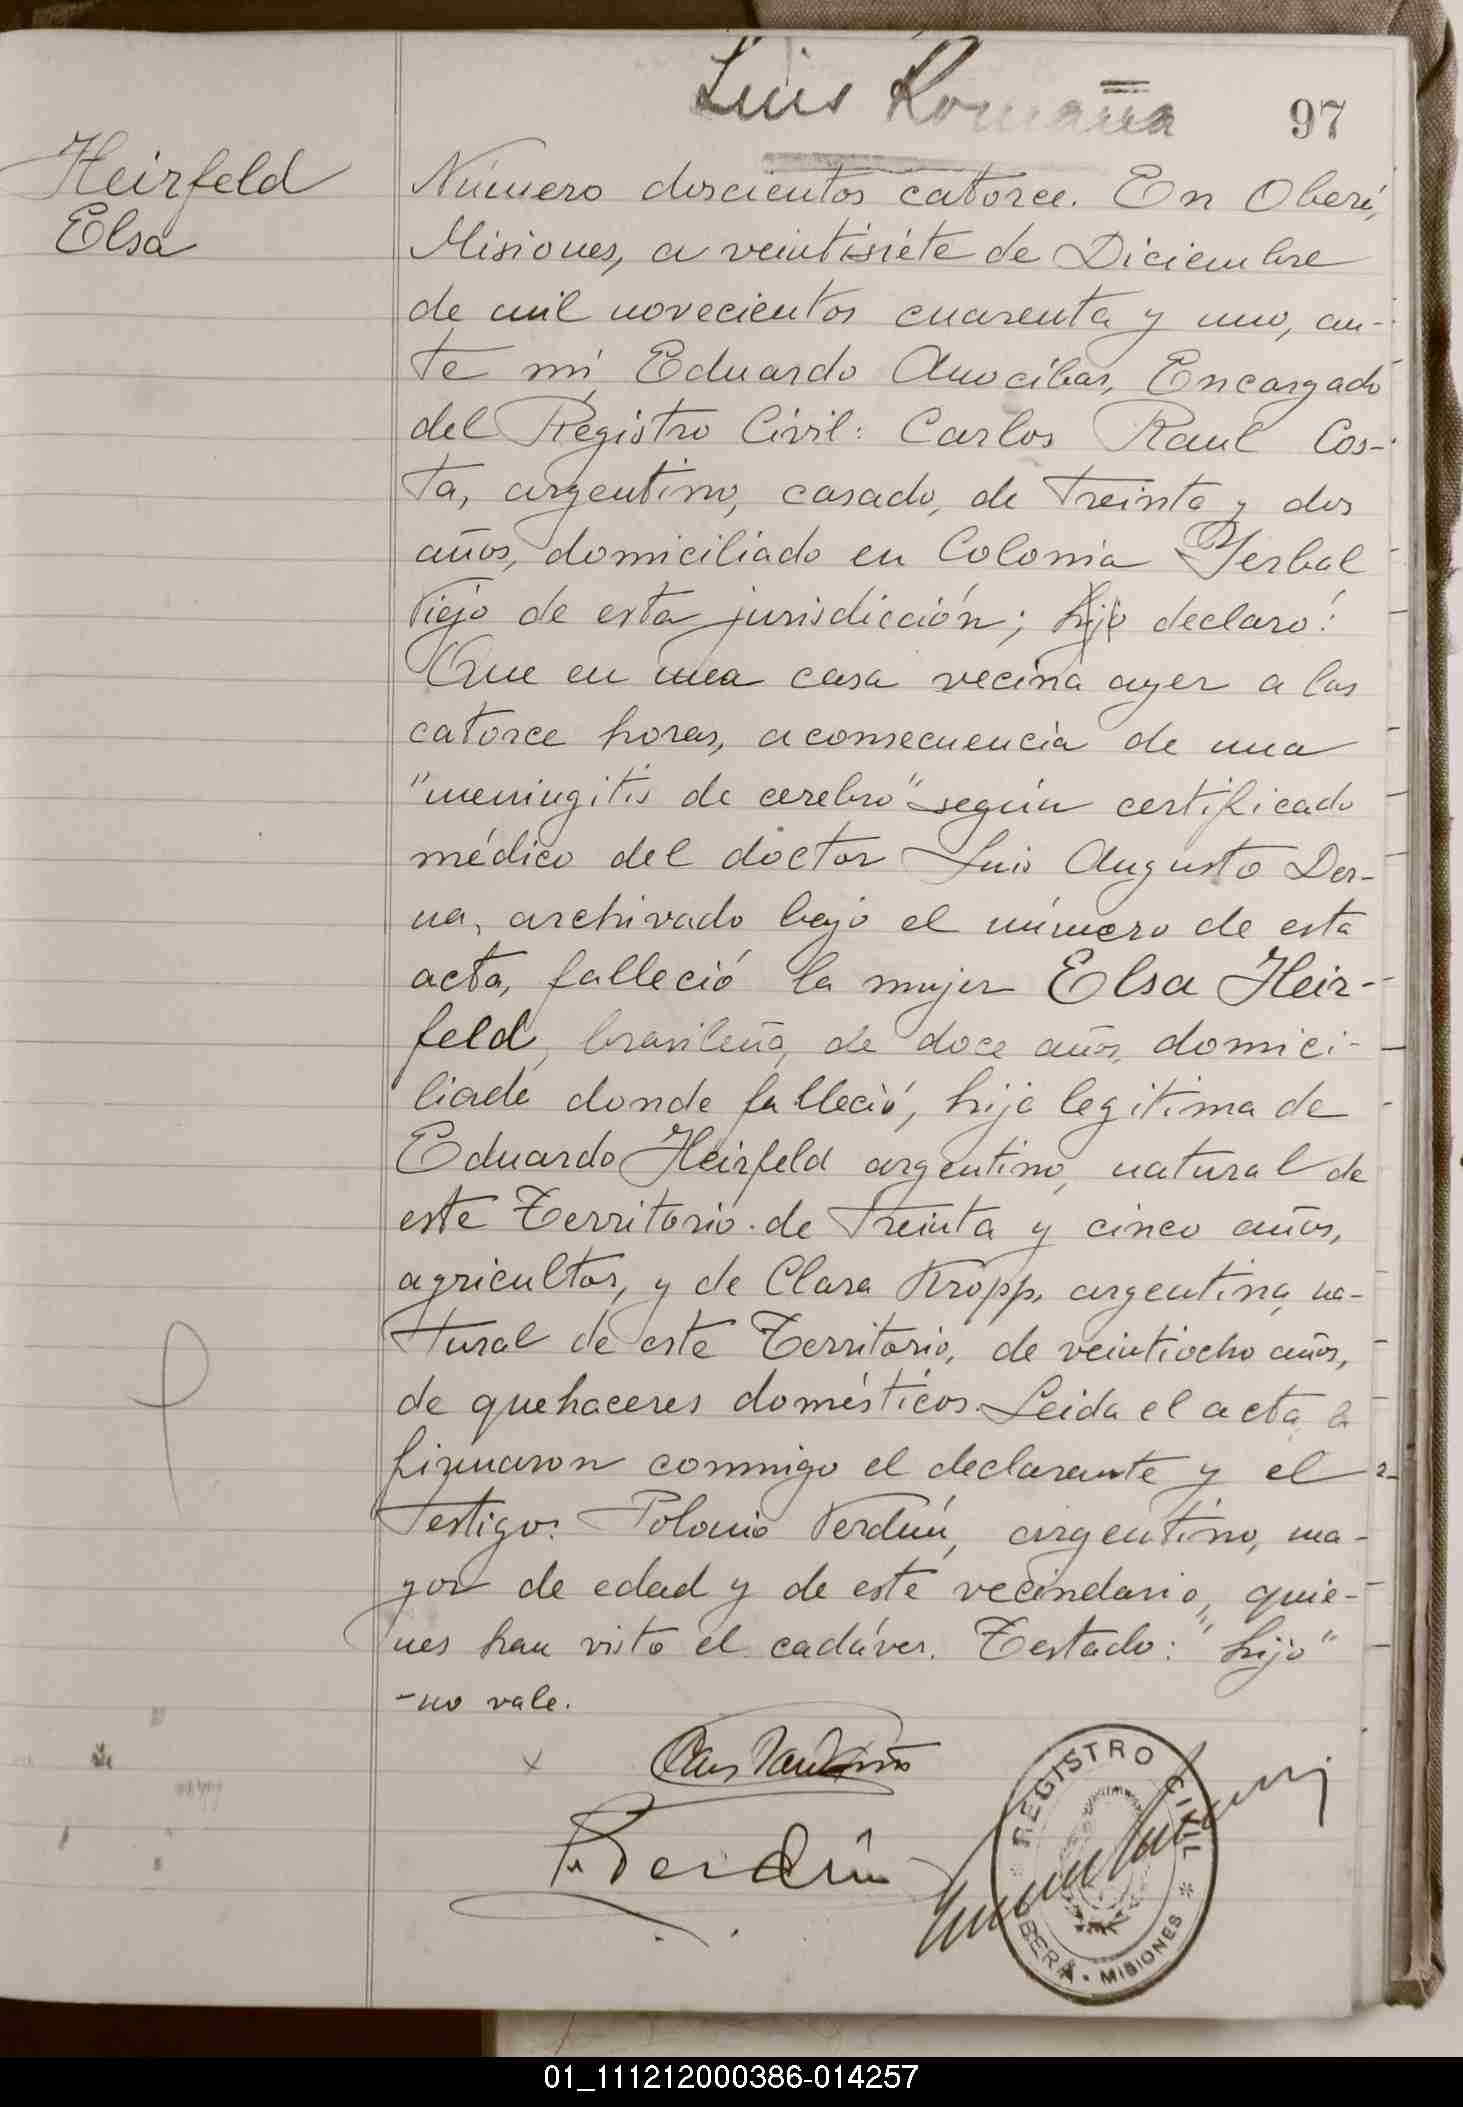 Luis Romaña
97
Heirfeld
Elsa
Número doscientos catorce. En Oberá,
Misiones, a veintisiete de Diciembre
de mil novecientos cuarenta y uno, an-
te mí, Eduardo Anocibar, Encargado
del Registro Civil: Carlos Raul Cos-
ta, argentino, casado, de treinta y dos
años, domiciliado en Colonia Yerbal
Viejo de esta jurisdicción; hijo declaró:
Que en una casa vecina ayer a las
catorce horas, a consecuencia de una
"meningitis de cerebro" según certificado
médico del doctor Luis Augusto Der-
na, archivado bajo el número de esta
acta, falleció la mujer Elsa Heir-
feld, brasileña, de doce años, domici-
liada donde falleció, hija legitima de
Eduardo Heirfeld argentino, natural de
este Territorio de treinta y cinco años,
agricultor, y de Clara Kropp, argentina, na-
tural de este Territorio, de veintiocho años,
de quehaceres domésticos. Leida el acta la
firmaron conmigo el declarante y el
testigo: Polonio Verdún, argentino, ma-
yor de edad y de este vecindario, quie-
nes han visto el cadáver. Testado: "hijo"
-no vale.
x
P. Verdún
REGISTRO CIVIL
OBERÁ - MISIONES
01_111212000386-014257